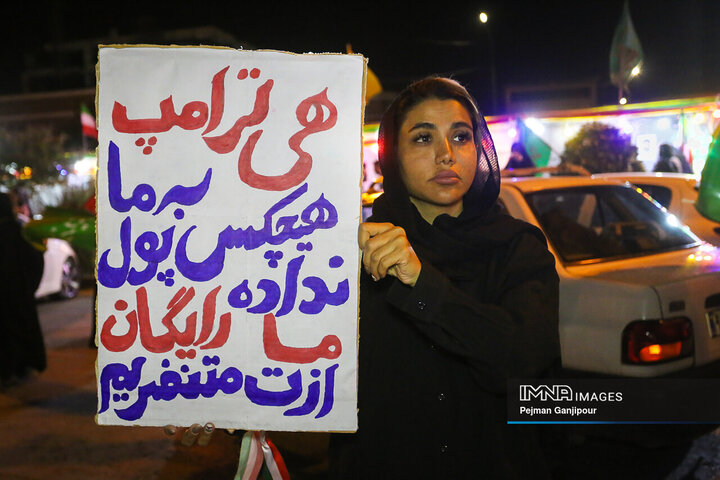 هی ترامپ
هیچکس به ما
پول
نداده
ما رایگان
ازت متنفریم
IMNA IMAGES
Pejman Ganjipour